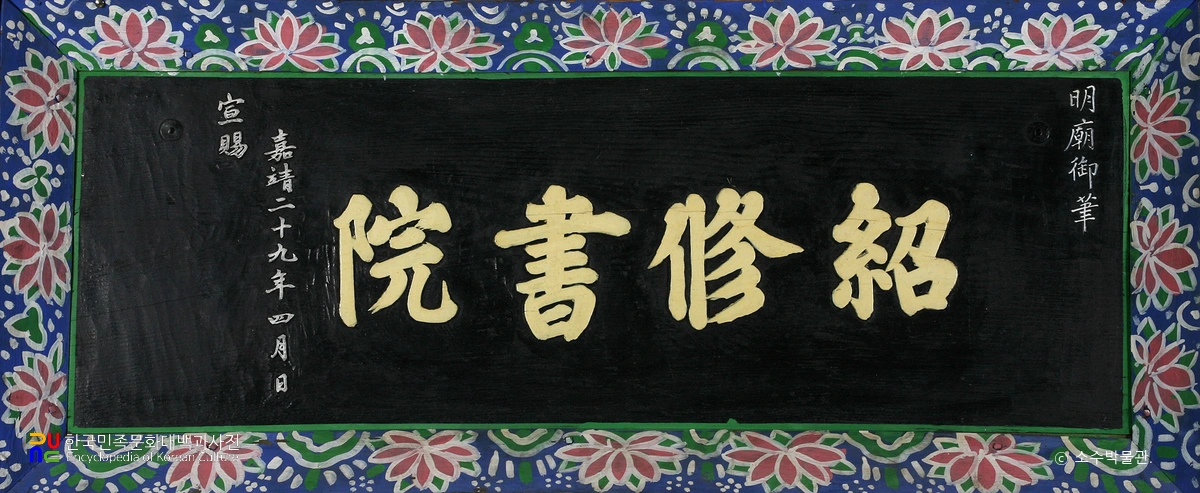 明廟御筆
紹修書院
嘉靖二十九年四月日
宣賜
한국민족문화대백과사전
Encyclopedia of Korean Culture
ⓒ 소수박물관